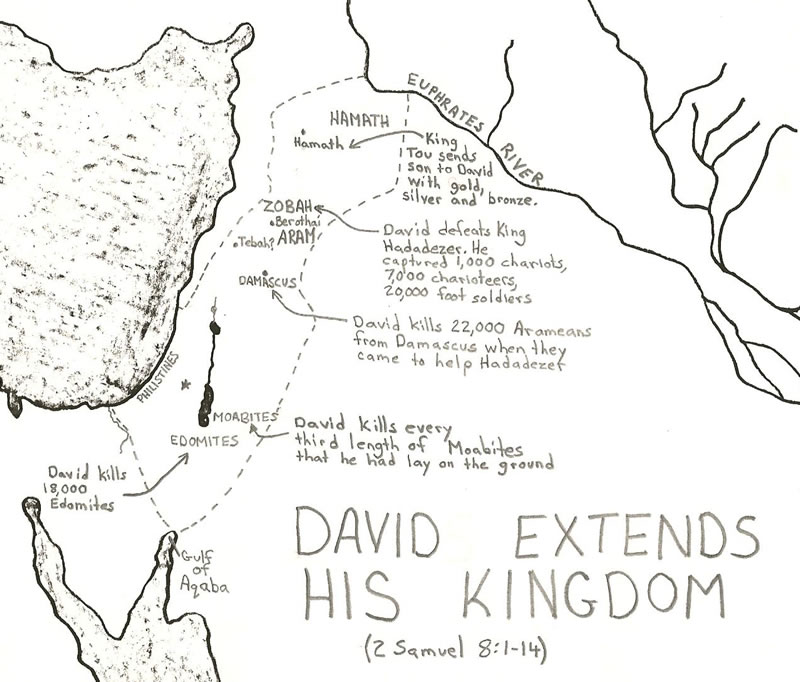 EUPHRATES RIVER
HAMATH
Hamath
King
Tou sends
son to David
with gold,
silver and bronze.
ZOBAH
Berothai
Tebah?
ARAM
David defeats King
Hadadezer. He
captured 1,000 chariots,
7,000 charioteers,
20,000 foot soldiers
DAMASCUS
David kills 22,000 Arameans
from Damascus when they
came to help Hadadezer
PHILISTINES
MOABITES
David kills every
third length of Moabites
that he had lay on the ground
EDOMITES
David kills
18,000
Edomites
Gulf
of
Aqaba
DAVID EXTENDS
HIS KINGDOM
(2 Samuel 8:1-14)